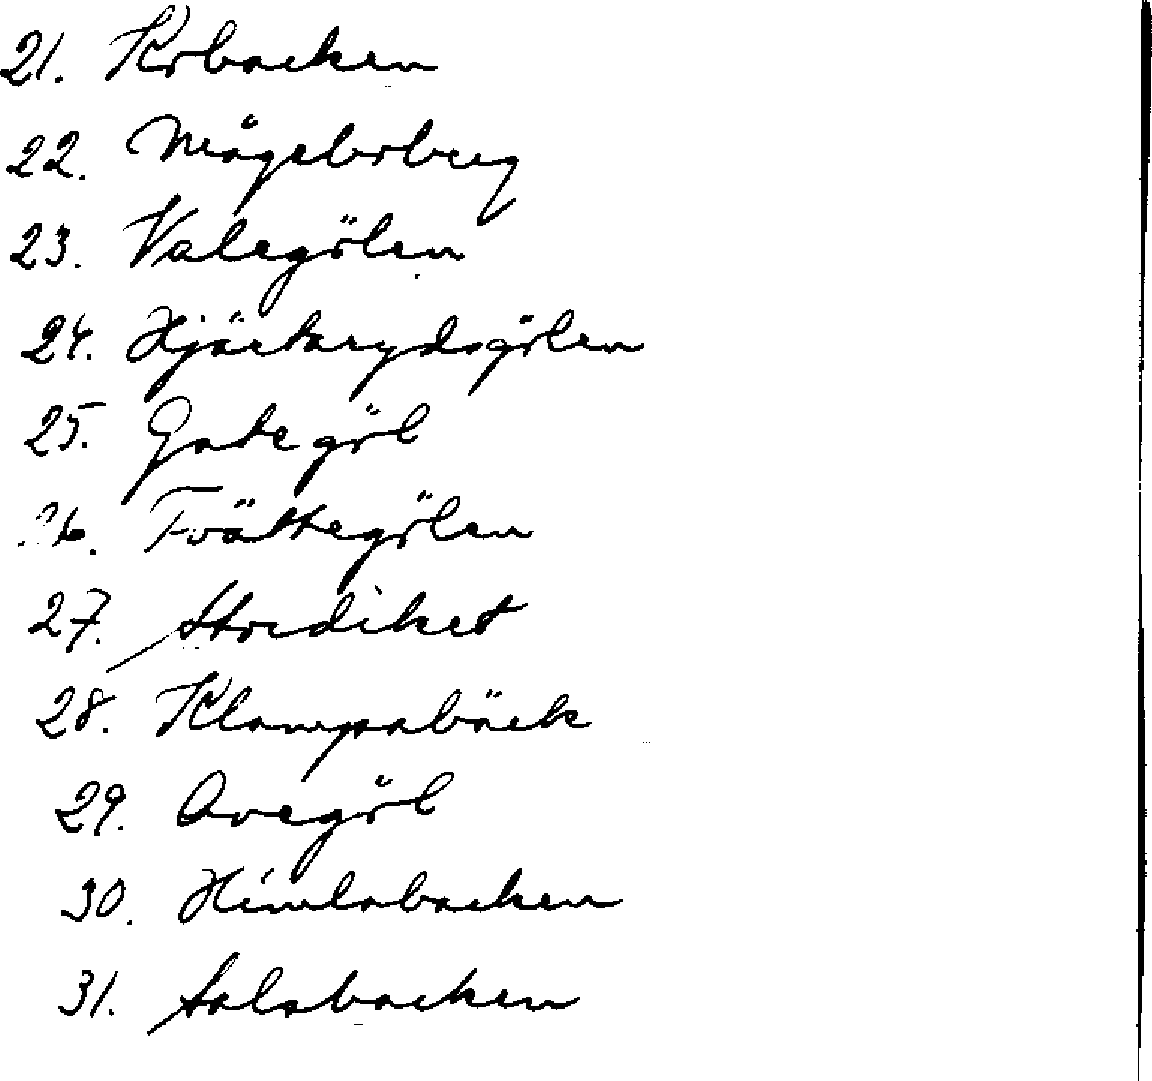 21. Krbacken
22. Mögelsberg
23. Valegölen
24. Hjärtarydsgölen
25. Gategöl
26. Tvättegölen
27. Stordiket
28. Klampabäck
29. Avegöl
30. Himlabacken
31. Salsbacken